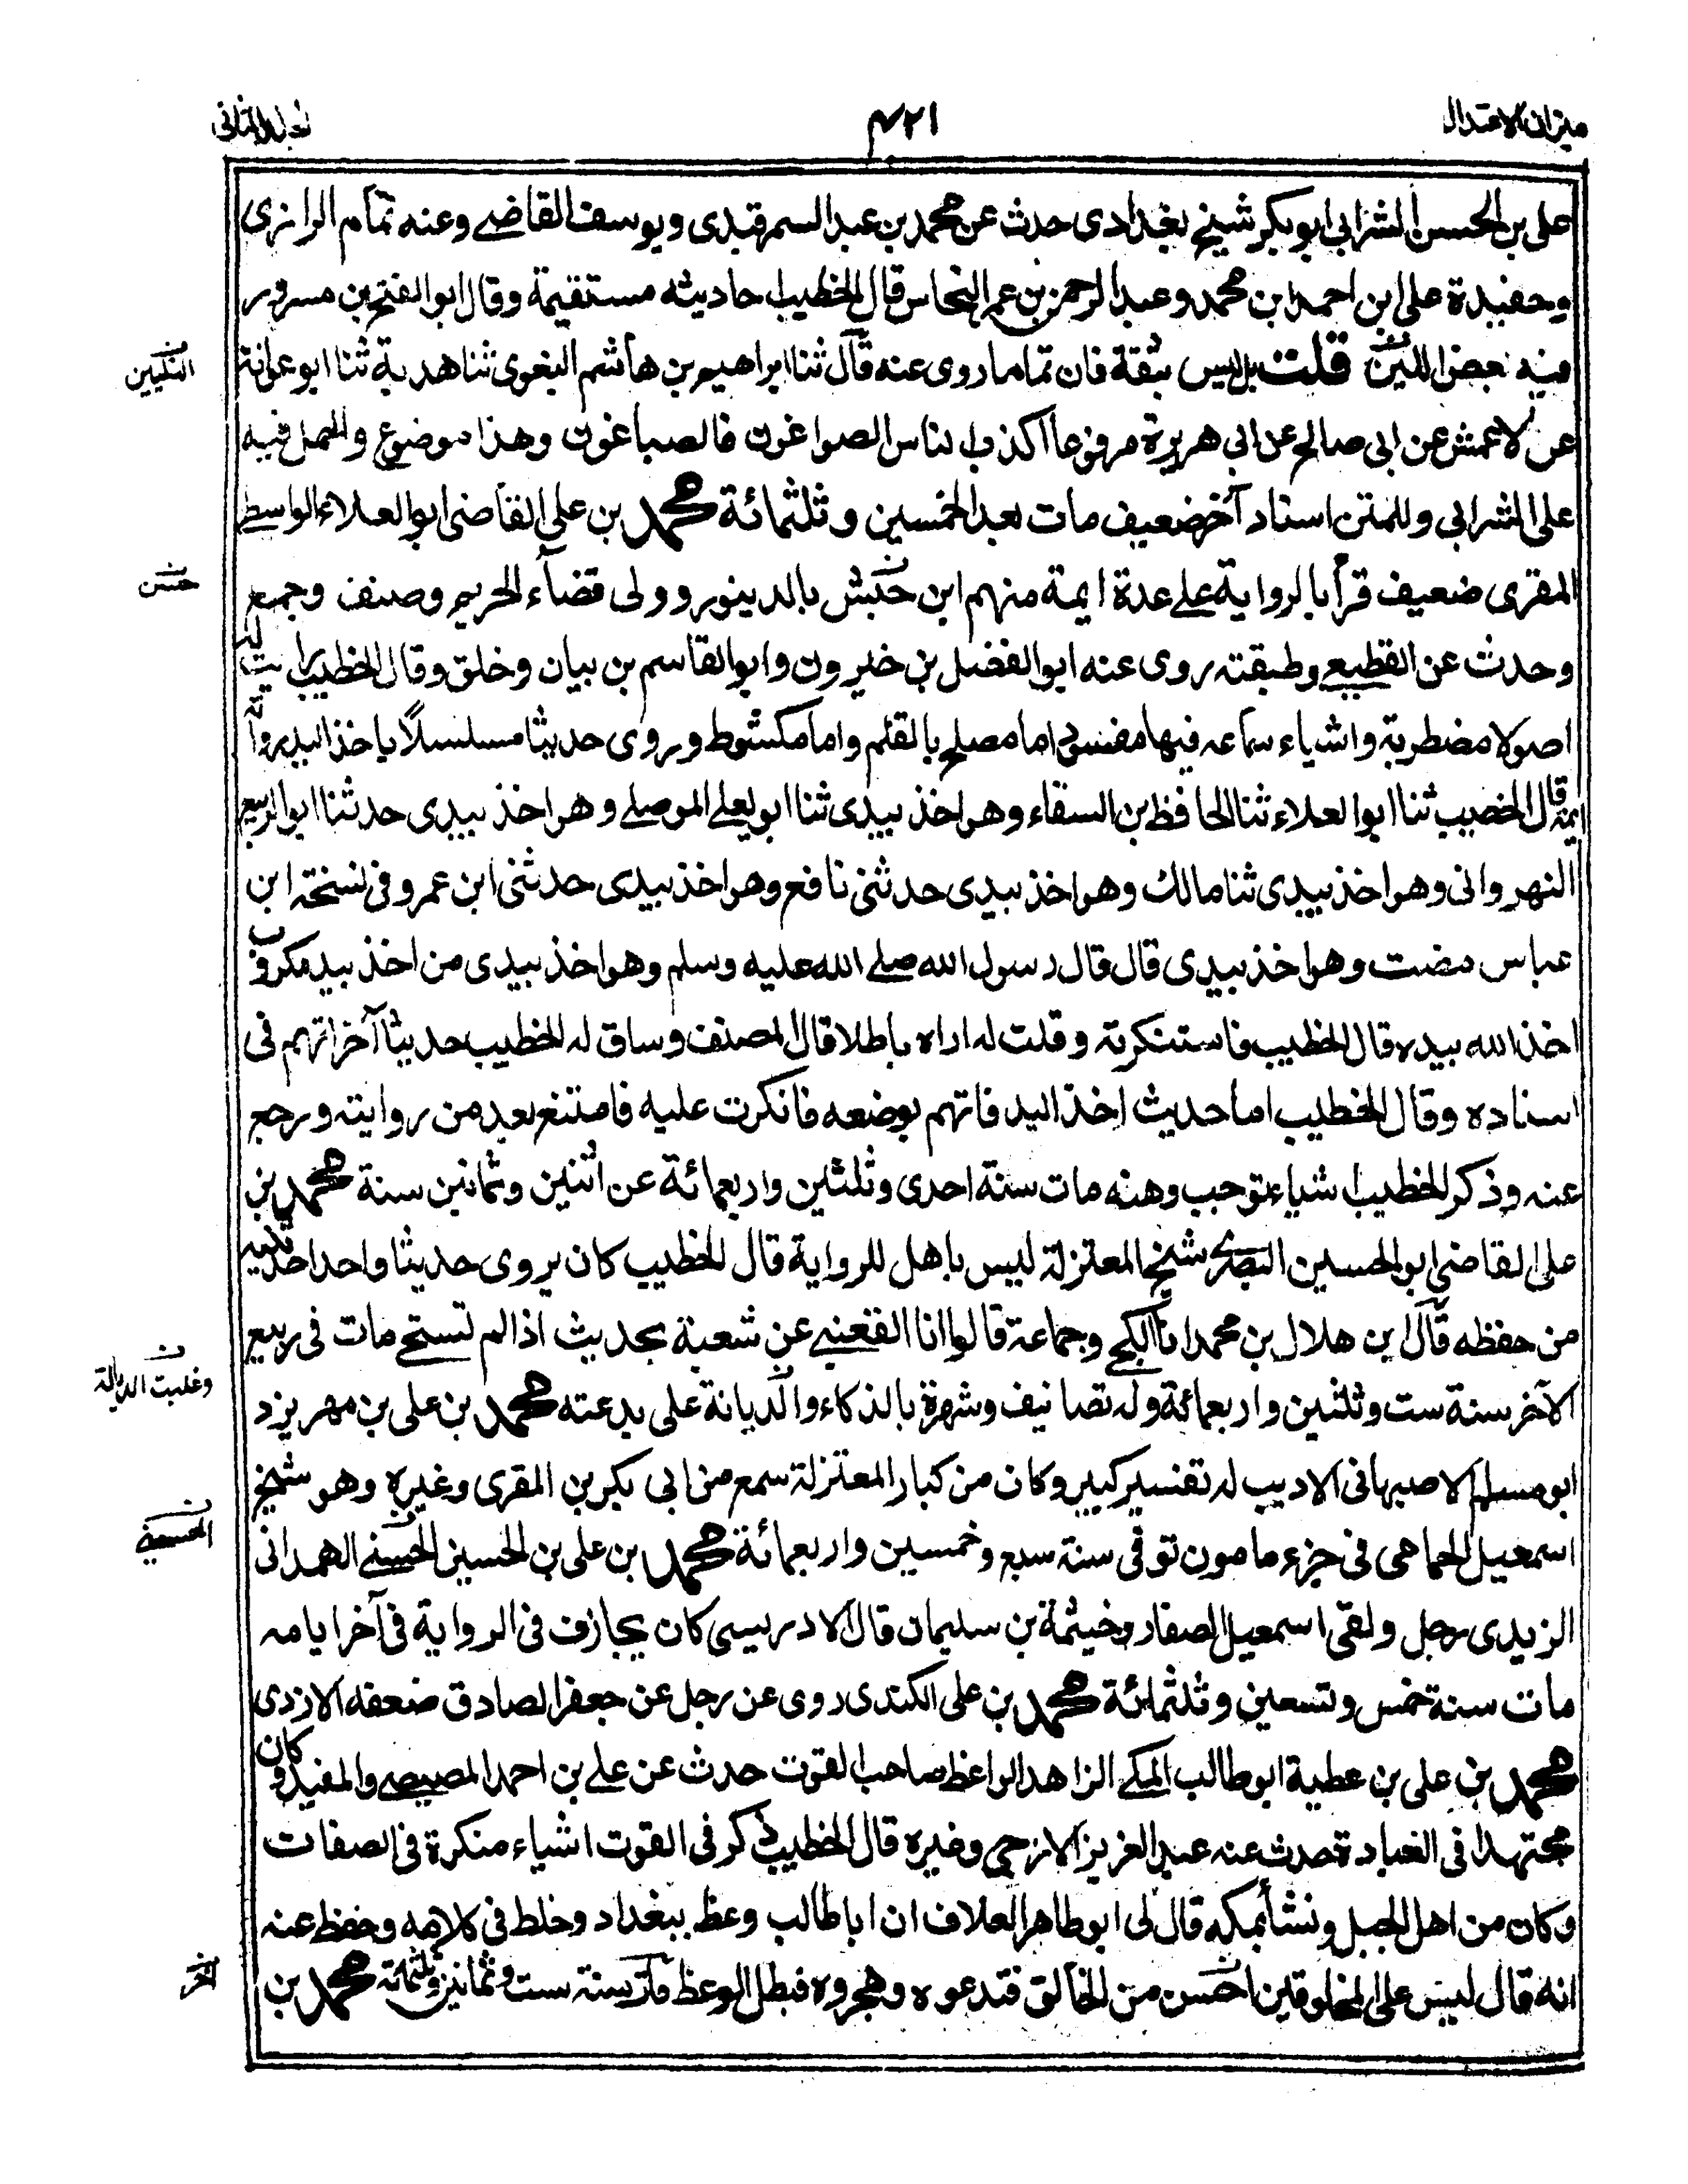 ميزان الاعتدال
٤٢١
الجلد الثانى
على بن الحسن الشرابى ابو بكر شيخ بغدادى حدث عن محمد بن عبد السمرقندى ويوسف القاضے وعنه تمام الرازى
وحفيدة على ابن احمد ابن محمد وعبد الرحمن بن عمر النحاس قال الخطيب احاديثه مستقيمة وقال ابو الفتح بن مسرور
فيه بعض اللين قلت بل ليس بثقة فان تماما روى عنه قال ثنا ابراهيم بن هاشم البغوى ثنا هدبة ثنا ابو عوانة
عن الاعمش عن ابى صالح عن ابى هريرة مرفوعا اكذب الناس الصواغون فالصباغون وهذا موضوع والحمل فيه
على الشرابى وللمتن اسناد آخر ضعيف مات بعد الخمسين وثلثمائة محمد بن على القاضى ابو العلاء الواسطے
المقرى ضعيف قرأ بالرواية علے عدة ايمة منهم ابن حبش بالدينور وولى قضآء الحريم وصنف وجمع
وحدث عن القطيعے وطبقته روى عنه ابو الفضل بن خيرون وابو القاسم بن بيان وخلق وقال الخطيب رايت له
اصولا مضطربة واشياء سماعه فيها مفسود اما مصلح بالقلم واما مكشوط وروى حديثا مسلسلاً باخذ اليد رواته
ايمة قال الخطيب ثنا ابو العلاء ثنا الحافظ بن السقاء وهو اخذ بيدى ثنا ابو يعلے الموصلے وهو اخذ بيدى حدثنا ابو الربيع
النهروانى وهو اخذ بيدى ثنا مالك وهو اخذ بيدى حدثنى نافع وهو اخذ بيدى حدثنى ابن عمر وفى نسخة ابن
عباس وهو اخذ بيدى قال قال رسول الله صلے الله عليه وسلم وهو اخذ بيدى من اخذ بيد مكروب
اخذ الله بيده قال الخطيب فاستنكرته وقلت له اراه باطلا قال المصنف وساق له الخطيب حديثا آخر اتهم فى
اسناده وقال الخطيب اما حديث اخذ اليد فاتهم بوضعه فانكرت عليه فامتنع بعد من روايته ورجع
عنه وذكر الخطيب اشياء توجب وهنه مات سنة احدى وثلثين واربعمائة عن اثنين وثمانين سنة محمد بن
على القاضى ابو الحسين البصرى شيخ المعتزلة ليس باهل للرواية قال الخطيب كان يروى حديثا واحدا حدثنيه
من حفظه قال ابن هلال بن محمد انا الكجے وجماعة قالوا انا القعنبے عن شعبة بحديث اذا لم تستحے مات فى ربيع
الآخر سنة ست وثلثين واربعمائة وله تصانيف وشهرة بالذكاء والديانة على بدعته محمد بن على بن مهريزد
ابو مسلم الاصبهانى الاديب له تفسير كبير وكان من كبار المعتزلة سمع من ابى بكر بن المقرى وغيره وهو شيخ
اسمعيل الحمامى فى جزء مامون توفى سنة سبع وخمسين واربعمائة محمد بن على بن الحسين الحسنے الهمدانى
الزيدى رجل ولقى اسمعيل الصفار وخيثمة بن سليمان قال الادريسى كان يجازف فى الرواية فى آخر ايامه
مات سنة خمس وتسعين وثلثمائة محمد بن على الكندى روى عن رجل عن جعفر الصادق ضعفه الازدى
محمد بن على بن عطية ابو طالب المكے الزاهد الواعظ صاحب القوت حدث عن علے بن احمد المصيصے والمفيد وكان
مجتهدا فى العبادة حدث عنه عبد العزيز الازجى وغيره قال الخطيب ذكر فى القوت اشياء منكرة فى الصفات
وكان من اهل الجبل ونشأ بمكه قال لى ابو طاهر العلاف ان ابا طالب وعظ ببغداد وخلط فى كلامه وحفظ عنه
انه قال ليس على المخلوقين احسن من الخالق فبدعوه وهجروه فبطل الوعظ مات سنة ست وثمانين وثلثمائة محمد بن
حسن
وغلبت الديالة
الحسينى